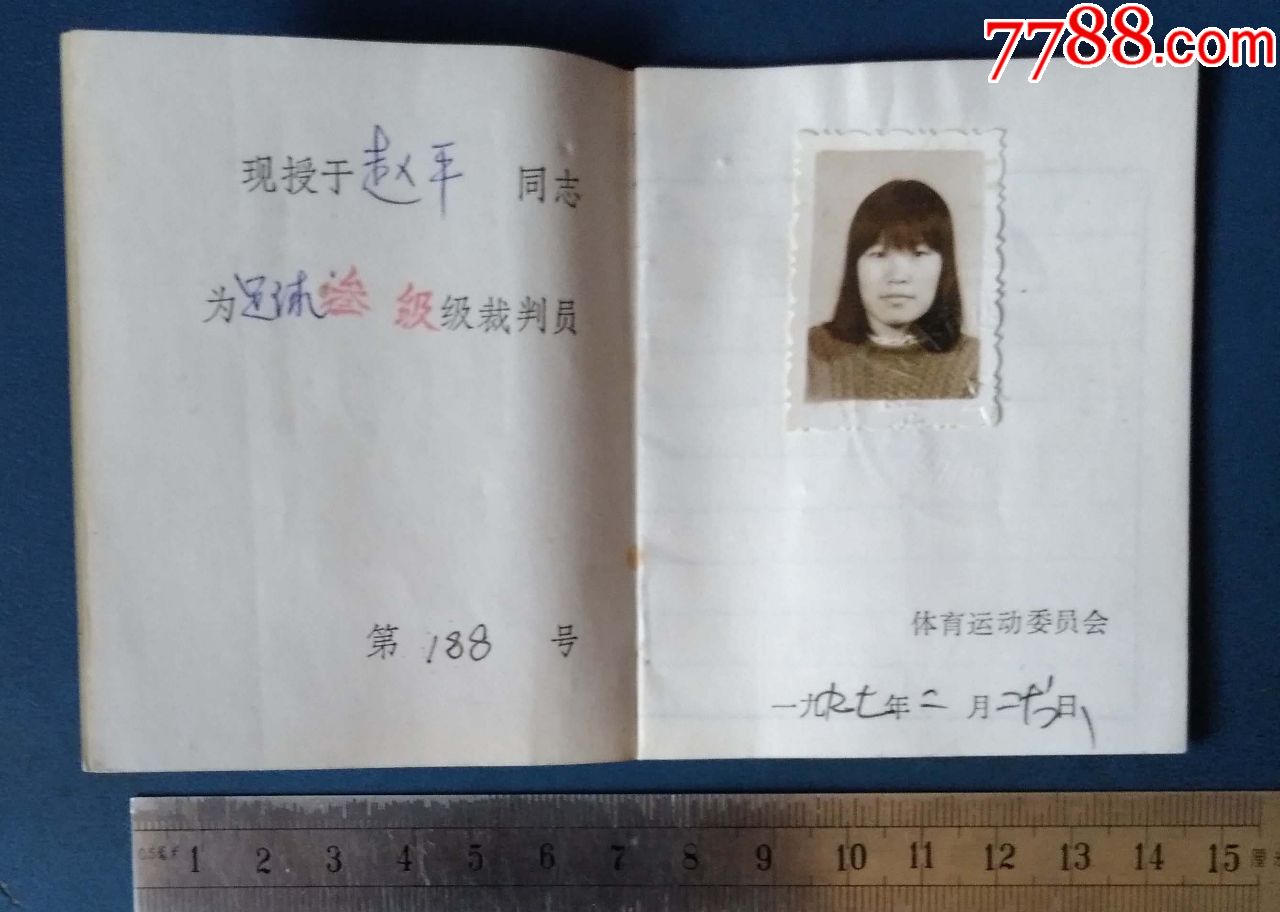 7788.com
现授于赵平 同志
为足球叁 级级裁判员
第 188 号
体育运动委员会
一九九七年二月日
1 2 3 4 5 6 7 8 9 10 11 12 13 14 15 厘